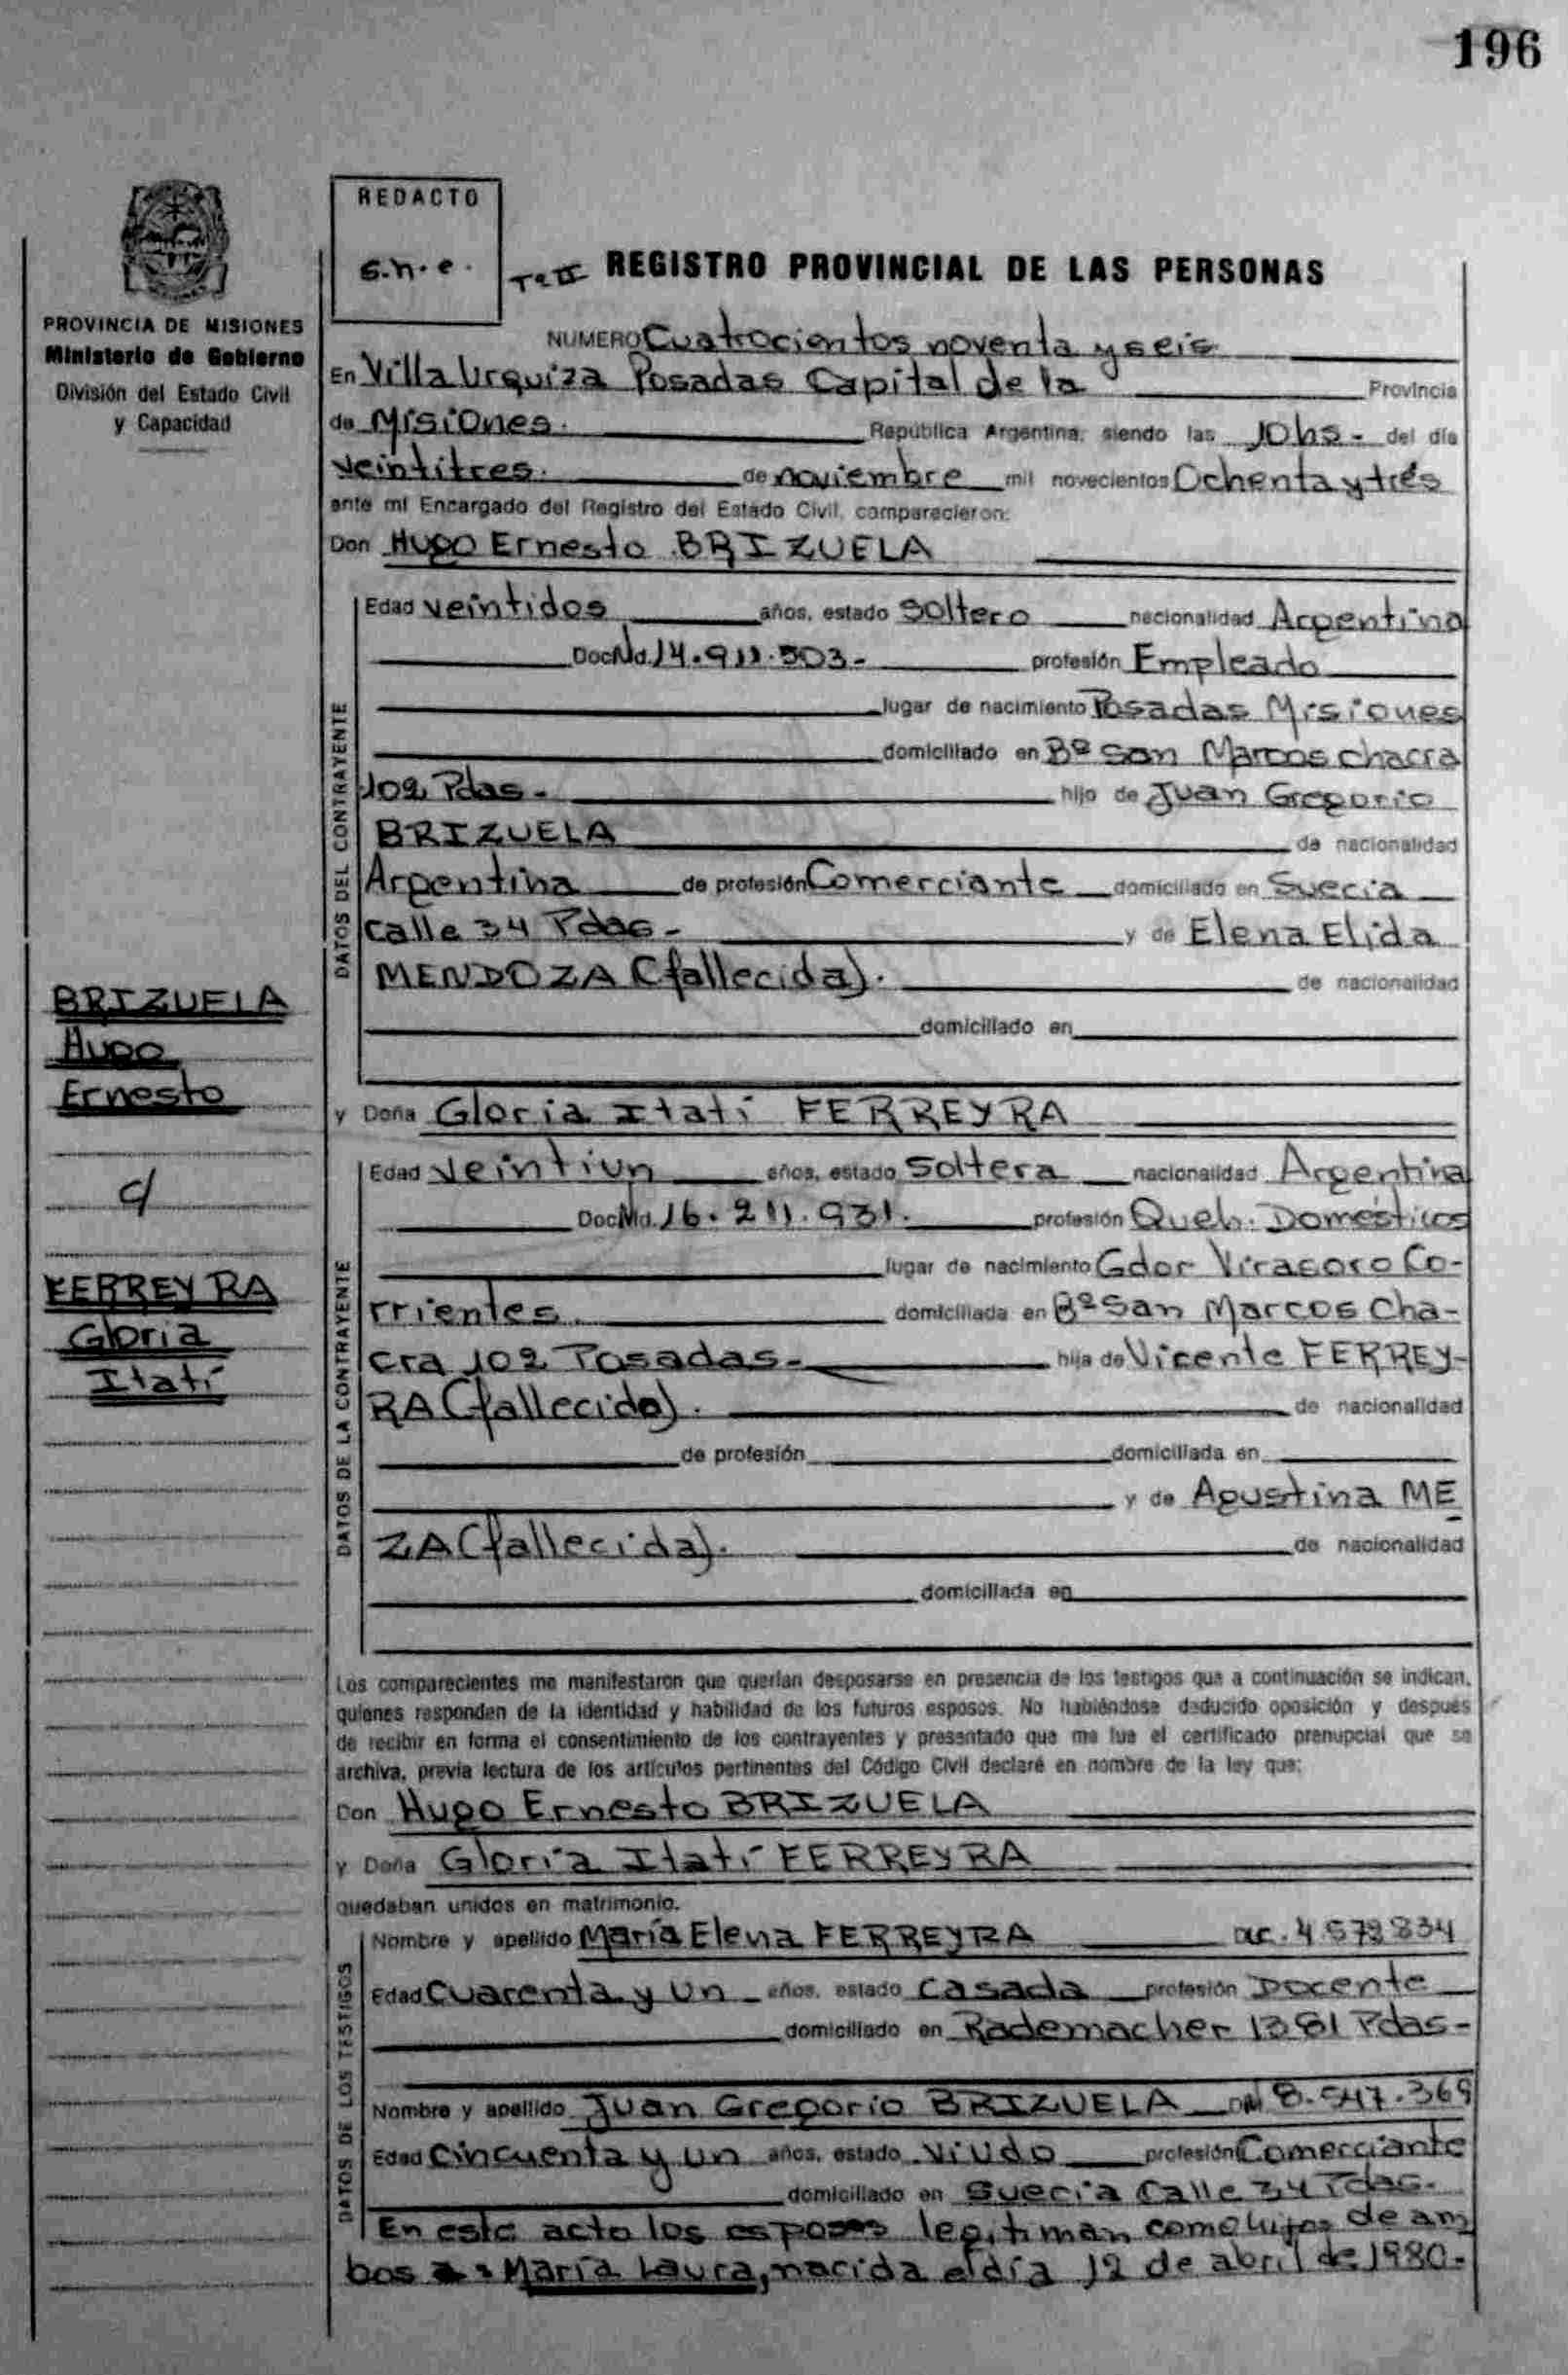 196
REDACTO
s.n.e.
Tº II REGISTRO PROVINCIAL DE LAS PERSONAS
PROVINCIA DE MISIONES
Ministerio de Gobierno
División del Estado Civil
y Capacidad
NUMERO Cuatrocientos noventa y seis
En Villa Urquiza Posadas Capital de la Provincia
de Misiones. República Argentina, siendo las 10 hs - del día
veintitres. de noviembre mil novecientos Ochenta y trés
ante mi Encargado del Registro del Estado Civil, comparecieron:
Don Hugo Ernesto BRIZUELA
DATOS DEL CONTRAYENTE
Edad veintidos años, estado Soltero nacionalidad Argentina
Doc Nd. 14.911.503- profesión Empleado
lugar de nacimiento Posadas Misiones
domiciliado en Bº San Marcos chacra
102 Pdas - hijo de Juan Gregorio
BRIZUELA de nacionalidad
Argentina de profesión Comerciante domiciliado en Suecia
calle 34 Pdas - y de Elena Elida
MENDOZA (fallecida). de nacionalidad
domiciliado en
BRIZUELA
Hugo
Ernesto
c/
FERREYRA
Gloria
Itatí
y Doña Gloria Itatí FERREYRA
DATOS DE LA CONTRAYENTE
Edad veintiun años, estado Soltera nacionalidad Argentina
Doc Nd. 16.211.931. profesión Queh. Domésticos
lugar de nacimiento Gdor Virasoro Co-
rrientes. domiciliada en Bº San Marcos Cha-
cra 102 Posadas - hija de Vicente FERREY-
RA (fallecido). de nacionalidad
de profesión domiciliada en
y de Agustina ME
ZA (fallecida). de nacionalidad
domiciliada en
Los comparecientes me manifestaron que querían desposarse en presencia de los testigos que a continuación se indican,
quienes responden de la identidad y habilidad de los futuros esposos. No habiéndose deducido oposición y después
de recibir en forma el consentimiento de los contrayentes y presentado que me fue el certificado prenupcial que se
archiva, previa lectura de los artículos pertinentes del Código Civil declaré en nombre de la ley que:
Don Hugo Ernesto BRIZUELA
y Doña Gloria Itatí FERREYRA
quedaban unidos en matrimonio.
DATOS DE LOS TESTIGOS
Nombre y apellido María Elena FERREYRA
Edad Cuarenta y un años, estado casada profesión Docente
domiciliado en Rademacher 1381 Pdas -
Nombre y apellido Juan Gregorio BRIZUELA 8.547.369
Edad Cincuenta y un años, estado viudo profesión Comerciante
domiciliado en Suecia Calle 34 Pdas.
En este acto los esposos legitiman como hijos de am
bos a: María Laura, nacida el día 12 de abril de 1980.